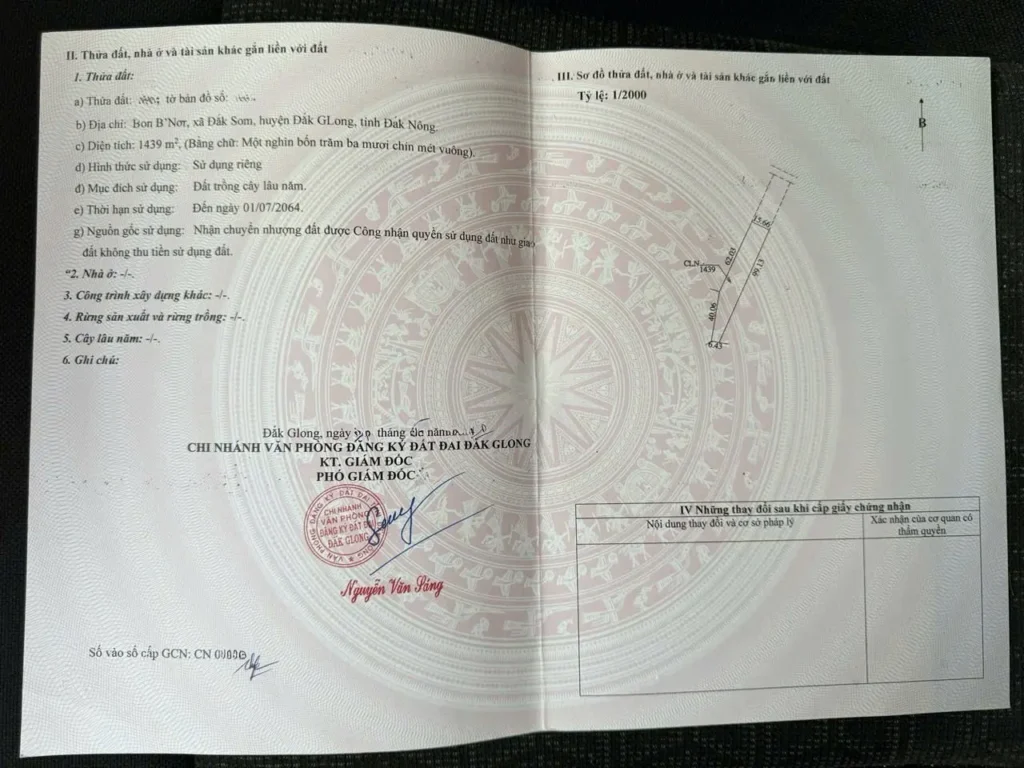 II. Thửa đất, nhà ở và tài sản khác gắn liền với đất
1. Thửa đất:
a) Thửa đất: tờ bản đồ số:
b) Địa chỉ: Bon B'Nơr, xã Đắk Som, huyện Đắk GLong, tỉnh Đắk Nông.
c) Diện tích: 1439 m², (Bằng chữ: Một nghìn bốn trăm ba mươi chín mét vuông).
d) Hình thức sử dụng: Sử dụng riêng
đ) Mục đích sử dụng: Đất trồng cây lâu năm.
e) Thời hạn sử dụng: Đến ngày 01/07/2064.
g) Nguồn gốc sử dụng: Nhận chuyển nhượng đất được Công nhận quyền sử dụng đất như giao
đất không thu tiền sử dụng đất.
2. Nhà ở: -/-.
3. Công trình xây dựng khác: -/-.
4. Rừng sản xuất và rừng trồng: -/-.
5. Cây lâu năm: -/-.
6. Ghi chú:
Đắk Glong, ngày tháng năm
CHI NHÁNH VĂN PHÒNG ĐĂNG KÝ ĐẤT ĐAI ĐẮK GLONG
KT. GIÁM ĐỐC
PHÓ GIÁM ĐỐC
CHI NHÁNH
VĂN PHÒNG
ĐĂNG KÝ ĐẤT ĐAI
ĐẮK GLONG
Nguyễn Văn Sáng
Số vào sổ cấp GCN: CN
III. Sơ đồ thửa đất, nhà ở và tài sản khác gắn liền với đất
Tỷ lệ: 1/2000
B
15.66
62.03
99.13
CLN
1439
40.06
6.43
IV Những thay đổi sau khi cấp giấy chứng nhận
Nội dung thay đổi và cơ sở pháp lý
Xác nhận của cơ quan có
thẩm quyền